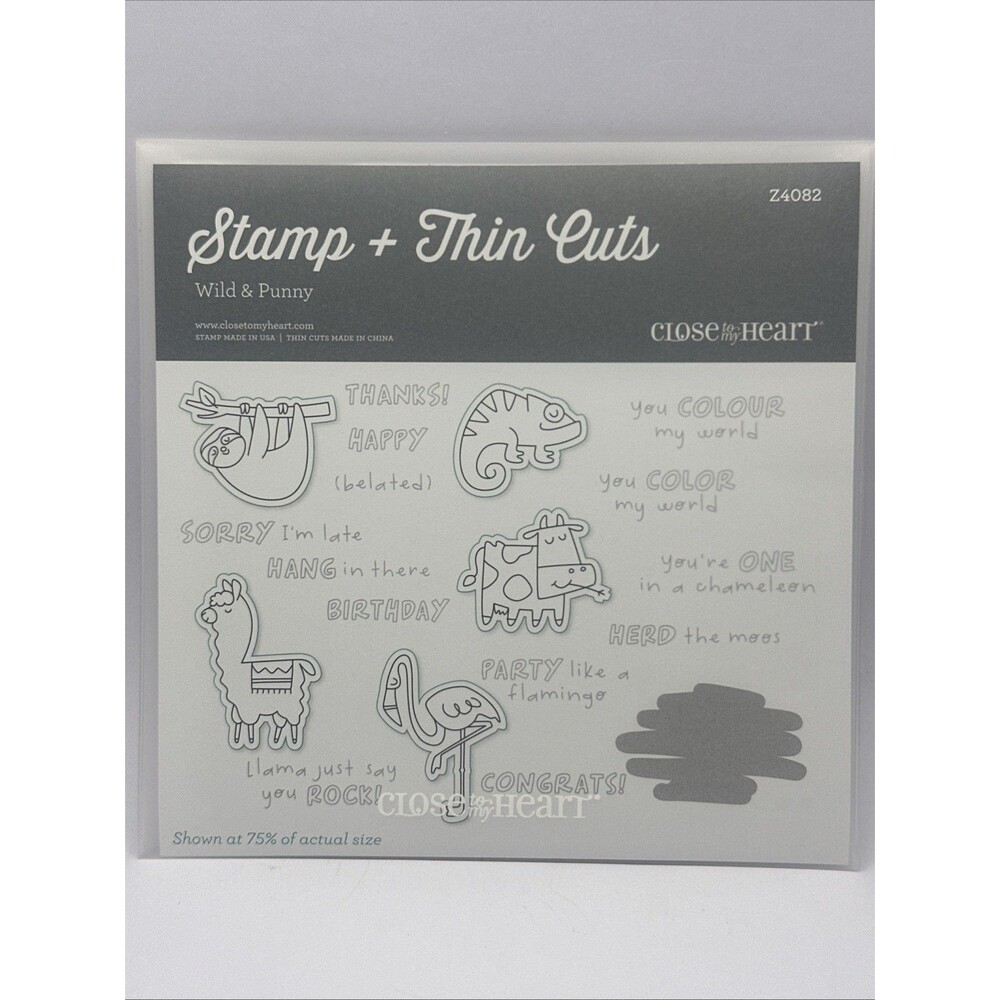 Z4082
Stamp + Thin Cuts
Wild & Punny
www.closetomyheart.com
STAMP MADE IN USA | THIN CUTS MADE IN CHINA
CLOSE to my HEART®
THANKS!
HAPPY
(belated)
you COLOUR
my world
you COLOR
my world
SORRY I'm late
HANG in there
BIRTHDAY
you're ONE
in a chameleon
HERD the moos
PARTY like a
flamingo
Llama just say
you ROCK!
CONGRATS!
CLOSE to my HEART®
Shown at 75% of actual size